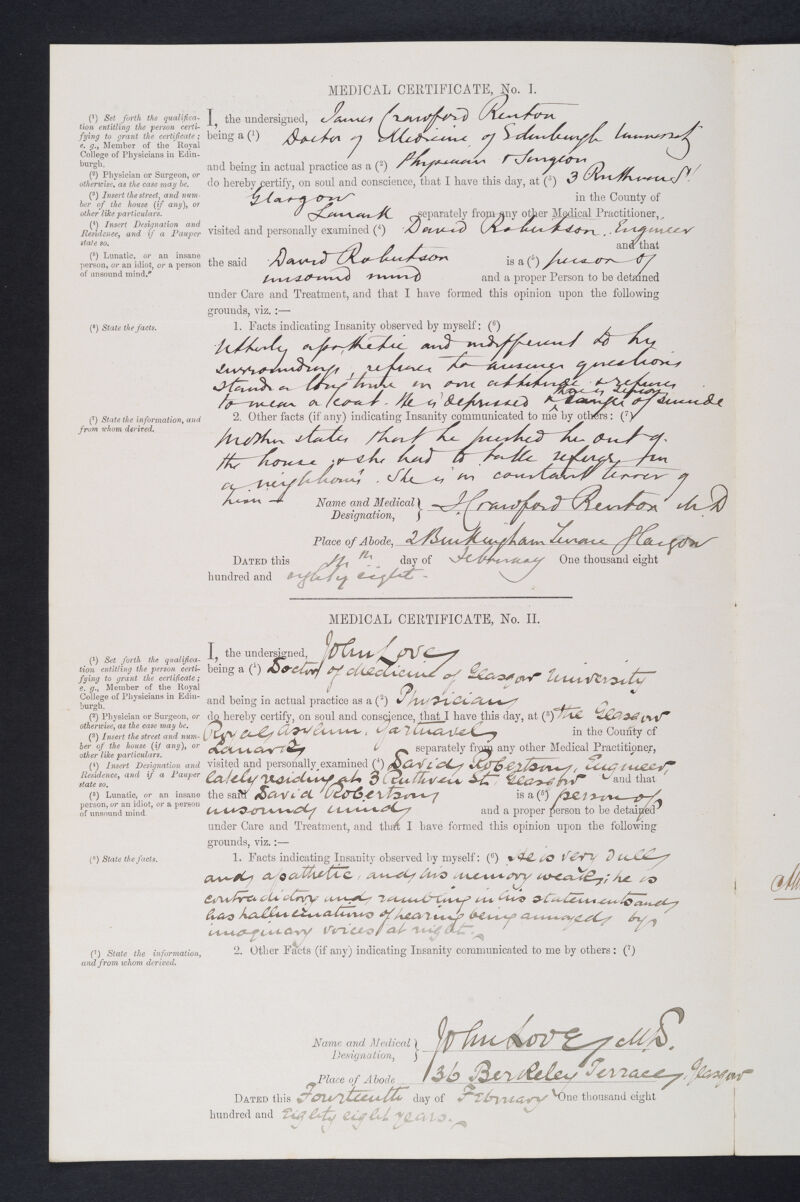 MEDICAL CERTIFICATE, No. I.
(¹) Set forth the qualifica-
tion entitling the person certi-
fying to grant the certificate;
e. g., Member of the Royal
College of Physicians in Edin-
burgh.
(²) Physician or Surgeon, or
otherwise, as the case may be.
(³) Insert the street, and num-
ber of the house (if any), or
other like particulars.
(⁴) Insert Designation and
Residence, and if a Pauper
state so.
(⁵) Lunatic, or an insane
person, or an idiot, or a person
of unsound mind."
(⁶) State the facts.
(⁷) State the information, and
from whom derived.
I, the undersigned, James Crawford Renton
being a (¹) Doctor of Medicine of Edinburgh University
and being in actual practice as a (²) Physician & Surgeon
do hereby certify, on soul and conscience, that I have this day, at (³) 3 Ruthven St
Glasgow in the County of
Lanark separately from any other Medical Practitioner,
visited and personally examined (⁴) David Robertson, Engineer
and that
the said David Robertson is a (⁵) person of
unsound mind and a proper Person to be detained
under Care and Treatment, and that I have formed this opinion upon the following
grounds, viz.:—
1. Facts indicating Insanity observed by myself: (⁶)
Utterly apathetic and indifferent to his
surroundings, refuses to answer questions
stands a long time in one attitude & refuses
to wear a coat. He is depressed & there is danger of suicide
2. Other facts (if any) indicating Insanity communicated to me by others: (⁷)
Mother states that he pushed her out of
the house & she had to take refuge in
a neighbour's. She is in constant terror of
him —
Name and Medical Designation, J. Crawford Renton M.D
Place of Abode, 2 Buckingham Terrace Glasgow
DATED this day of February One thousand eight
hundred and eighty eight.
MEDICAL CERTIFICATE, No. II.
(¹) Set forth the qualifica-
tion entitling the person certi-
fying to grant the certificate;
e. g., Member of the Royal
College of Physicians in Edin-
burgh.
(²) Physician or Surgeon, or
otherwise, as the case may be.
(³) Insert the street and num-
ber of the house (if any), or
other like particulars.
(⁴) Insert Designation and
Residence, and if a Pauper
state so.
(⁵) Lunatic, or an insane
person, or an idiot, or a person
of unsound mind
(⁶) State the facts.
(⁷) State the information,
and from whom derived.
I, the undersigned, John Love
being a (¹) Doctor of Medicine of Glasgow University
and being in actual practice as a (²) Physician
do hereby certify, on soul and conscience, that I have this day, at (³) the Glasgow
Royal Asylum, Gartnavel in the County of
Lanark separately from any other Medical Practitioner,
visited and personally examined (⁴) David Robertson, Engineer,
lately residing at 3 Ruthven St. Glasgow and that
the said David Robertson is a (⁵) person of
unsound mind and a proper person to be detained
under Care and Treatment, and that I have formed this opinion upon the following
grounds, viz.:—
1. Facts indicating Insanity observed by myself: (⁶) He is very dull
and apathetic, and his memory weak; he is
contradictory and rambling in his statements and
has hallucinations of hearing being annoyed by
imaginary voices at night.
2. Other Facts (if any) indicating Insanity communicated to me by others: (⁷)
Name and Medical Designation, John Love, M.D.
Place of Abode 136 Berkeley Terrace, Glasgow
DATED this Fourteenth day of February One thousand eight
hundred and Eighty eight years.